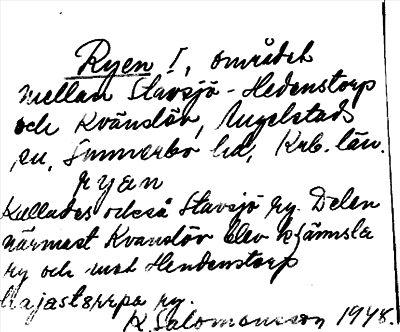 Ryen I, området
mellan Stavsjö - Hedenstorp
och Kvänslöv, Angelstads
sn, Sunnerbo hd, Krb. län.
ryan
Kallades också Stavsjö ry. Delen
närmast Kvänslöv blev
ry och mot Hendenstorp
ry.
K. Salomonsson 1948.